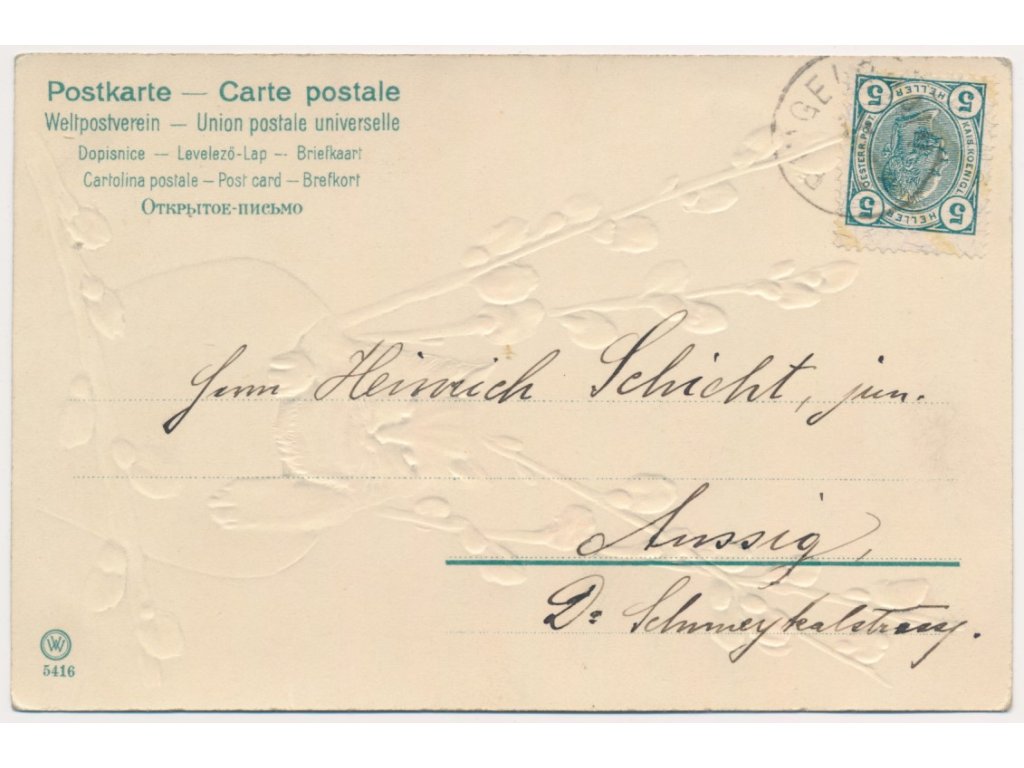 Postkarte — Carte postale
Weltpostverein — Union postale universelle
Dopisnice — Levelező-Lap — Briefkaart
Cartolina postale — Post card — Brefkort
Открытое-письмо
5 HELLER 5
OESTERR. POST
KAIS. KOENIGL.
5 HELLER 5
Herrn Heinrich Schicht, jun.
Aussig,
Dr Schmeykalstrasse.
W
5416